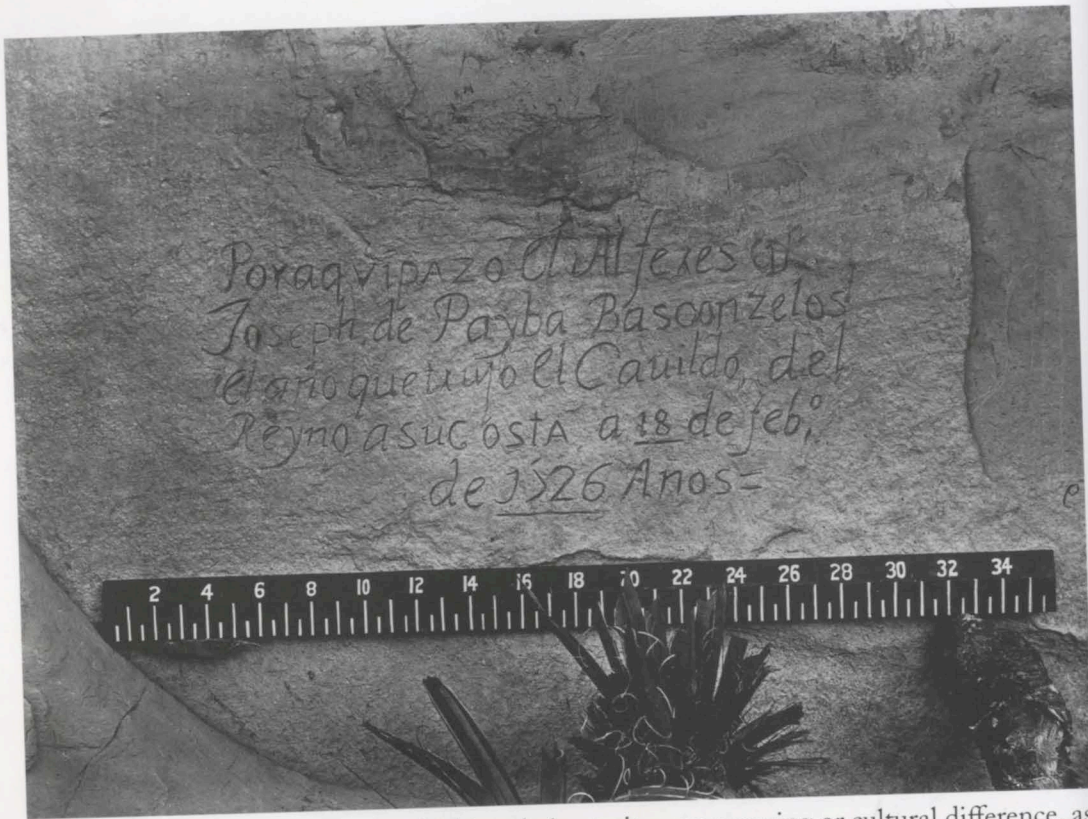 Por aqvi pazo el Alferes Dn
Joseph de Payba Basconzelos
el año que trujo el Cauildo del
Reyno a su costa a 18 de febo
de 1526 Años=
2 4 6 8 10 12 14 16 18 20 22 24 26 28 30 32 34
e
or cultural difference, as